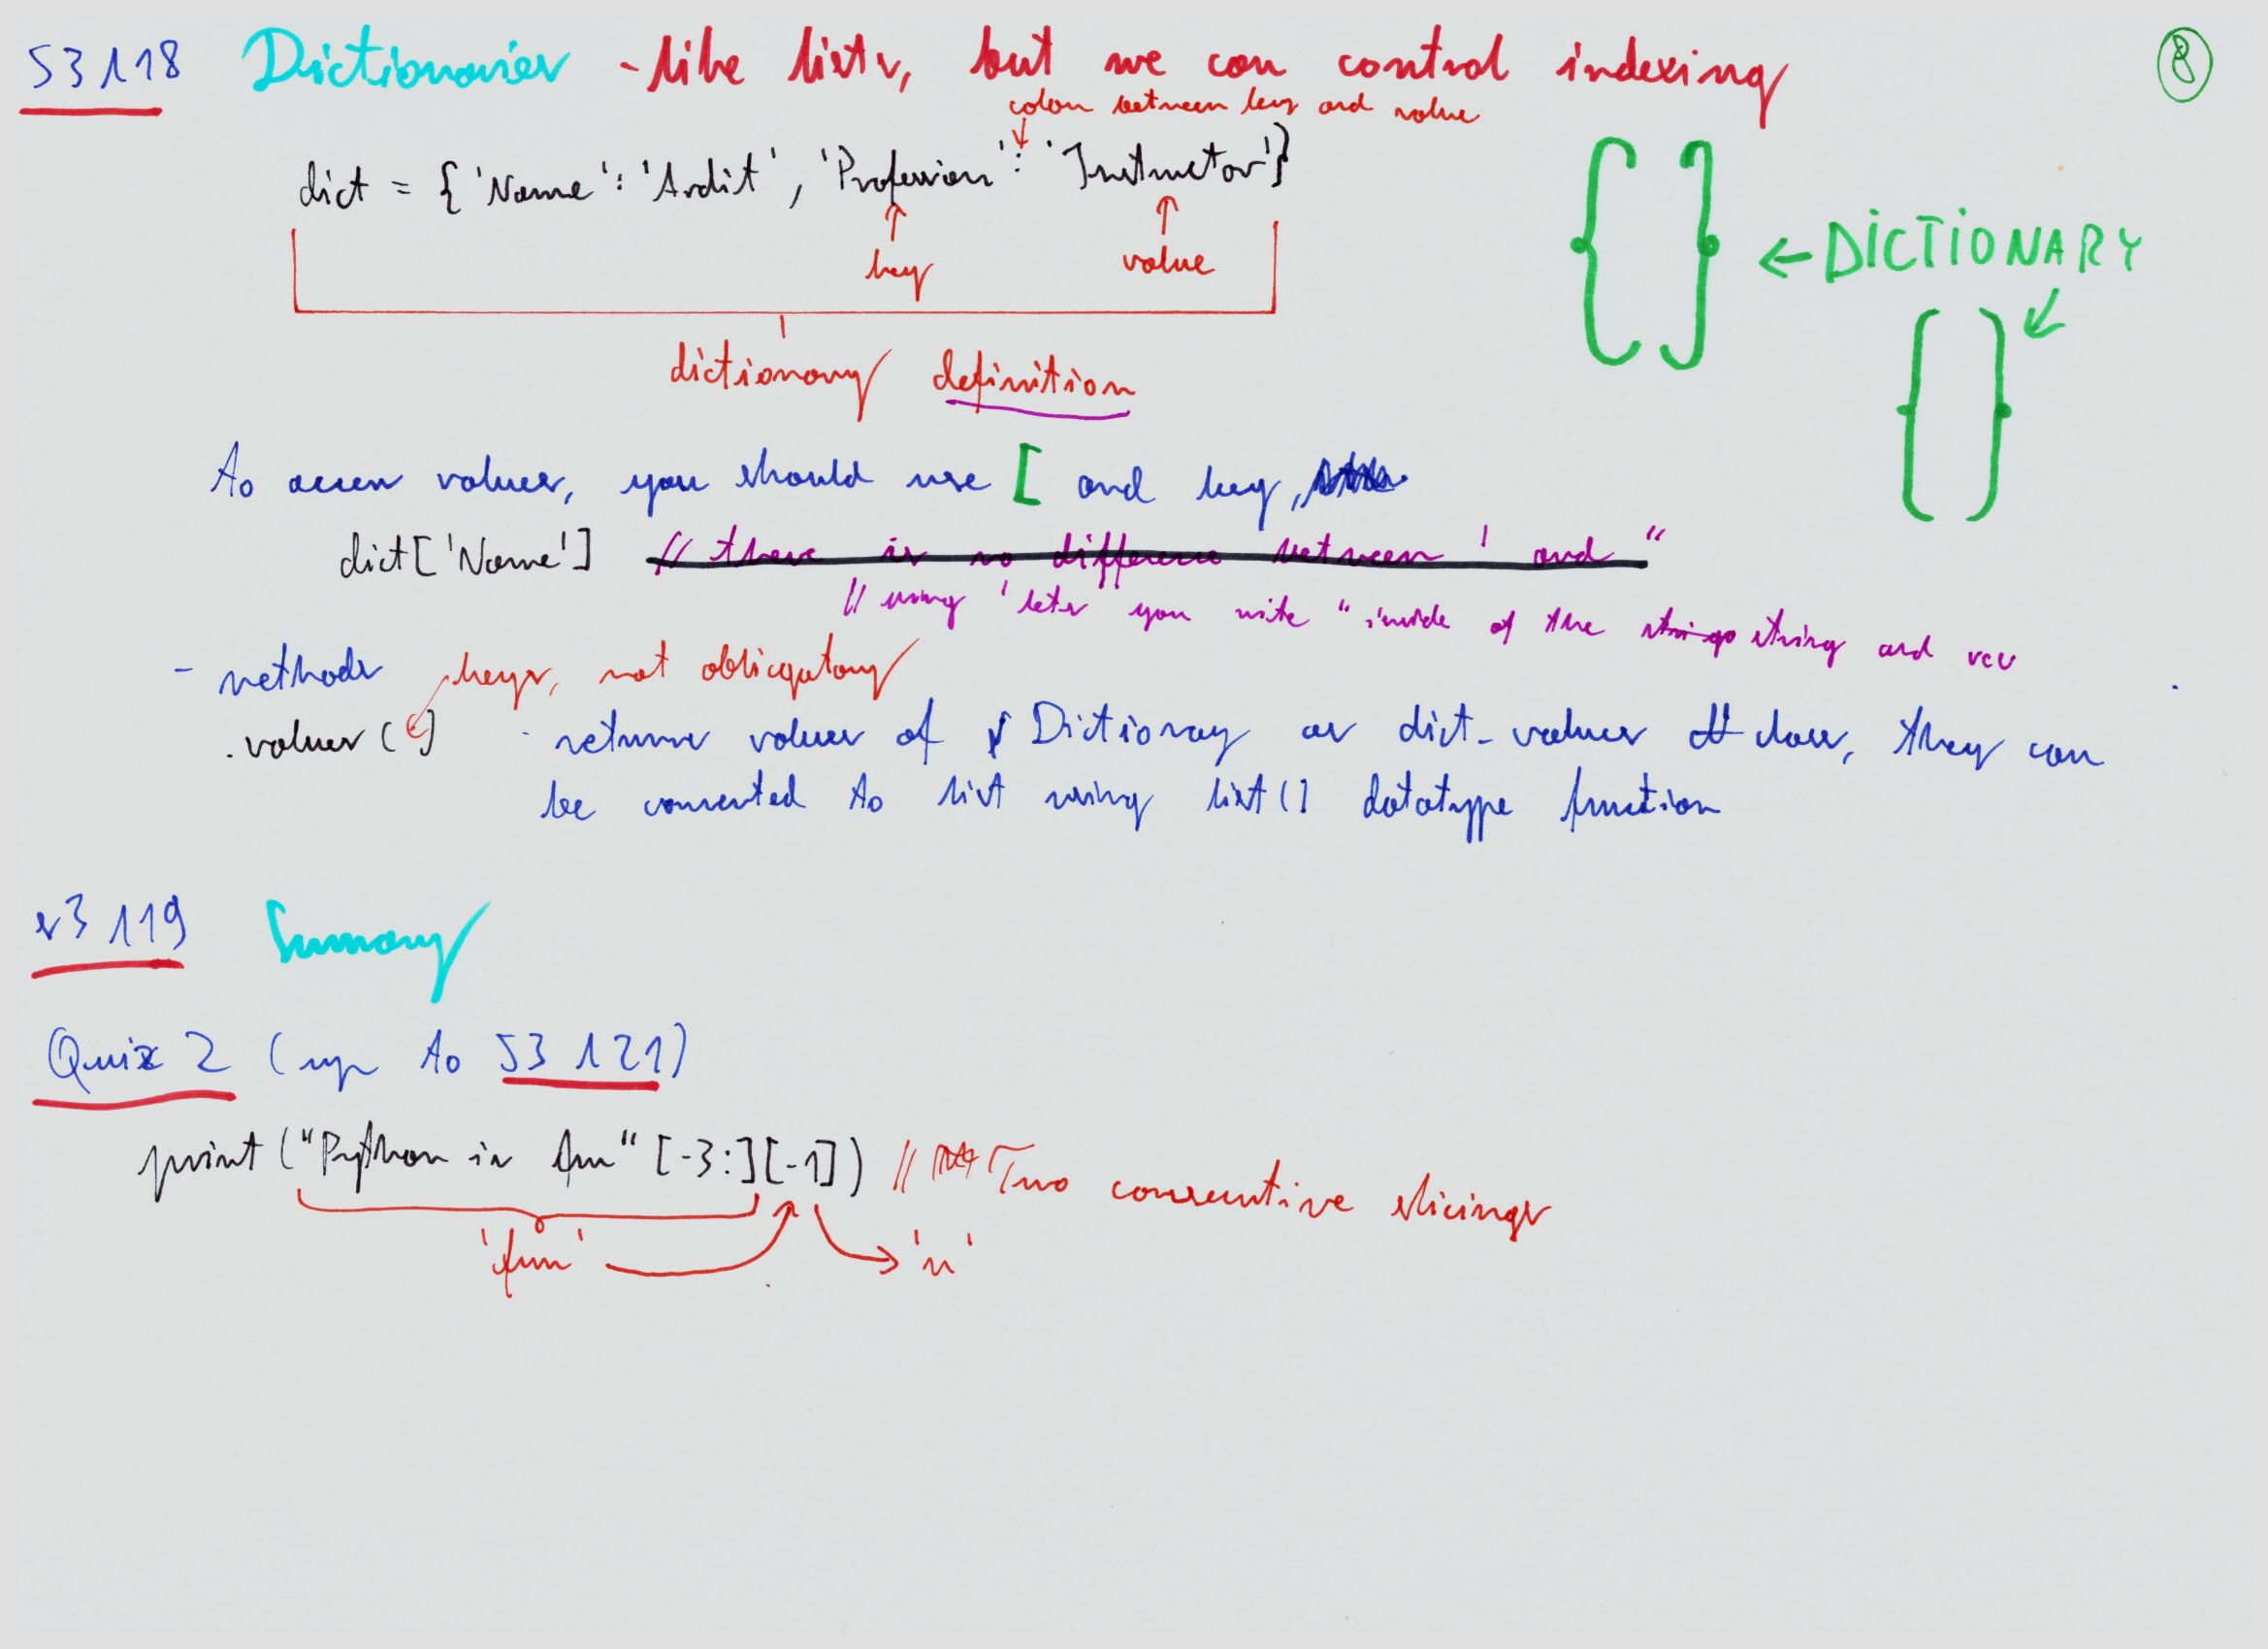 S3 118 Dictionaries - like lists, but we can control indexing
8
colon between key and value
dict = {'Name': 'Ardit', 'Profession': 'Instructor'}
key
value
{ } ← DICTIONARY
{ }
dictionary definition
To access values, you should use [ and key,
dict['Name'] // there is no difference between ' and "
// using ' lets you write " inside of the string and vcv
- methods
keys, not obligatory
.values( ) - returns values of Dictionary as dict_values class, they can
be converted to list using list() datatype function
s3 119 Summary
Quiz 2 (up to S3 121)
print ("Python is fun" [-3:][-1]) // Two consecutive slicings
'fun' 'n'